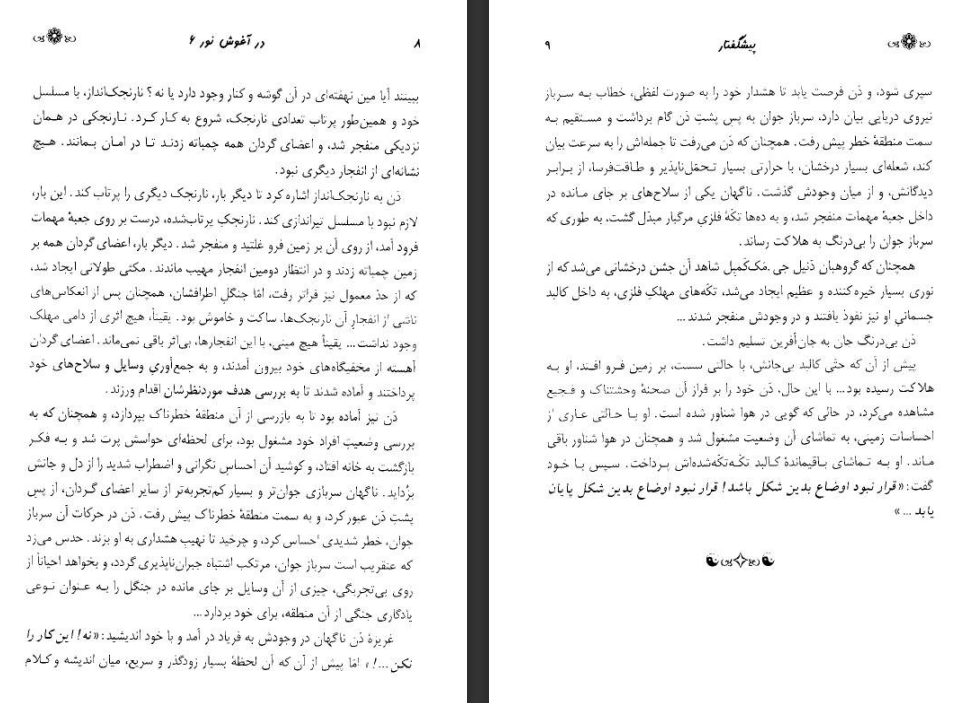 ۸
در آغوش نور ۶
ببینند آیا مین نهفته‌ای در آن گوشه و کنار وجود دارد یا نه؟ نارنجک‌انداز، با مسلسل
خود و همین‌طور پرتاب تعدادی نارنجک، شروع به کار کرد. نارنجکی در همان
نزدیکی منفجر شد، و اعضای گردان همه چمباته زدند تا در امان بمانند. هیچ
نشانه‌ای از انفجار دیگری نبود.
دَن به نارنجک‌انداز اشاره کرد تا دیگر بار، نارنجک دیگری را پرتاب کند. این بار،
لازم نبود با مسلسل تیراندازی کند. نارنجکِ پرتاب‌شده، درست بر روی جعبهٔ مهمات
فرود آمد، از روی آن بر زمین فرو غلتید و منفجر شد. دیگر بار، اعضای گردان همه بر
زمین چمباته زدند و در انتظار دومین انفجار مهیب ماندند. مکثی طولانی ایجاد شد،
که از حدّ معمول نیز فراتر رفت، امّا جنگلِ اطرافشان، همچنان پس از انعکاس‌های
ناشی از انفجارِ آن نارنجک‌ها، ساکت و خاموش بود. یقیناً، هیچ اثری از دامی مهلک
وجود نداشت... یقیناً هیچ مینی، با این انفجارها، بی‌اثر باقی نمی‌ماند. اعضای گردان
آهسته از مخفیگاه‌های خود بیرون آمدند، و به جمع‌آوریِ وسایل و سلاح‌های خود
پرداختند و آماده شدند تا به بررسی هدف موردنظرشان اقدام ورزند.
دَن نیز آماده بود تا به بازرسی از آن منطقهٔ خطرناک بپردازد، و همچنان که به
بررسی وضعیتِ افراد خود مشغول بود، برای لحظه‌ای حواسش پرت شد و به فکر
بازگشت به خانه افتاد، و کوشید آن احساسِ نگرانی و اضطراب شدید را از دل و جانش
بزُداید. ناگهان سربازی جوان‌تر و بسیار کم‌تجربه‌تر از سایر اعضای گردان، از پسِ
پشتِ دَن عبور کرد، و به سمت منطقهٔ خطرناک پیش رفت. دَن در حرکات آن سرباز
جوان، خطر شدیدی احساس کرد، و چرخید تا نهیبِ هشداری به او بزند. حدس می‌زد
که عنقریب است سرباز جوان، مرتکب اشتباه جبران‌ناپذیری گردد، و بخواهد احیاناً از
روی بی‌تجربگی، چیزی از آن وسایل بر جای مانده در جنگل را به عنوان نوعی
یادگاری جنگی از آن منطقه، برای خود بردارد...
غریزهٔ دَن ناگهان در وجودش به فریاد در آمد و با خود اندیشید: «نه! این کار را
نکن...!» امّا پیش از آن که آن لحظهٔ بسیار زودگذر و سریع، میان اندیشه و کلام
پیشگفتار
۹
سپری شود، و دَن فرصت یابد تا هشدار خود را به صورت لفظی، خطاب به سرباز
نیروی دریایی بیان دارد، سرباز جوان به پس پشتِ دَن گام برداشت و مستقیم به
سمت منطقهٔ خطر پیش رفت. همچنان که دَن می‌رفت تا جمله‌اش را به سرعت بیان
کند، شعله‌ای بسیار درخشان، با حرارتی بسیار تحمّل‌ناپذیر و طاقت‌فرسا، از برابر
دیدگانش، و از میان وجودش گذشت. ناگهان یکی از سلاح‌های بر جای مانده در
داخل جعبهٔ مهمات منفجر شد، و به ده‌ها تکّهٔ فلزیِ مرگبار مبدّل گشت، به طوری که
سرباز جوان را بی‌درنگ به هلاکت رساند.
همچنان که گروهبان دَنیل جی.مَک‌کمپل شاهد آن جشن درخشانی می‌شد که از
نوری بسیار خیره‌کننده و عظیم ایجاد می‌شد، تکّه‌های مهلکِ فلزی، به داخل کالبد
جسمانیِ او نیز نفوذ یافتند و در وجودش منفجر شدند...
دَن بی‌درنگ جان به جان‌آفرین تسلیم داشت.
پیش از آن که حتّی کالبد بی‌جانش، با حالتی سست، بر زمین فرو افتد، او به
هلاکت رسیده بود... با این حال، دَن خود را بر فراز آن صحنهٔ وحشتناک و فجیع
مشاهده می‌کرد، در حالی که گویی در هوا شناور شده است. او با حالتی عاری از
احساسات زمینی، به تماشای آن وضعیت مشغول شد و همچنان در هوا شناور باقی
ماند. او به تماشای باقیماندهٔ کالبد تکّه‌تکّه‌شده‌اش پرداخت. سپس با خود
گفت: «قرار نبود اوضاع بدین شکل باشد! قرار نبود اوضاع بدین شکل پایان
یابد...»